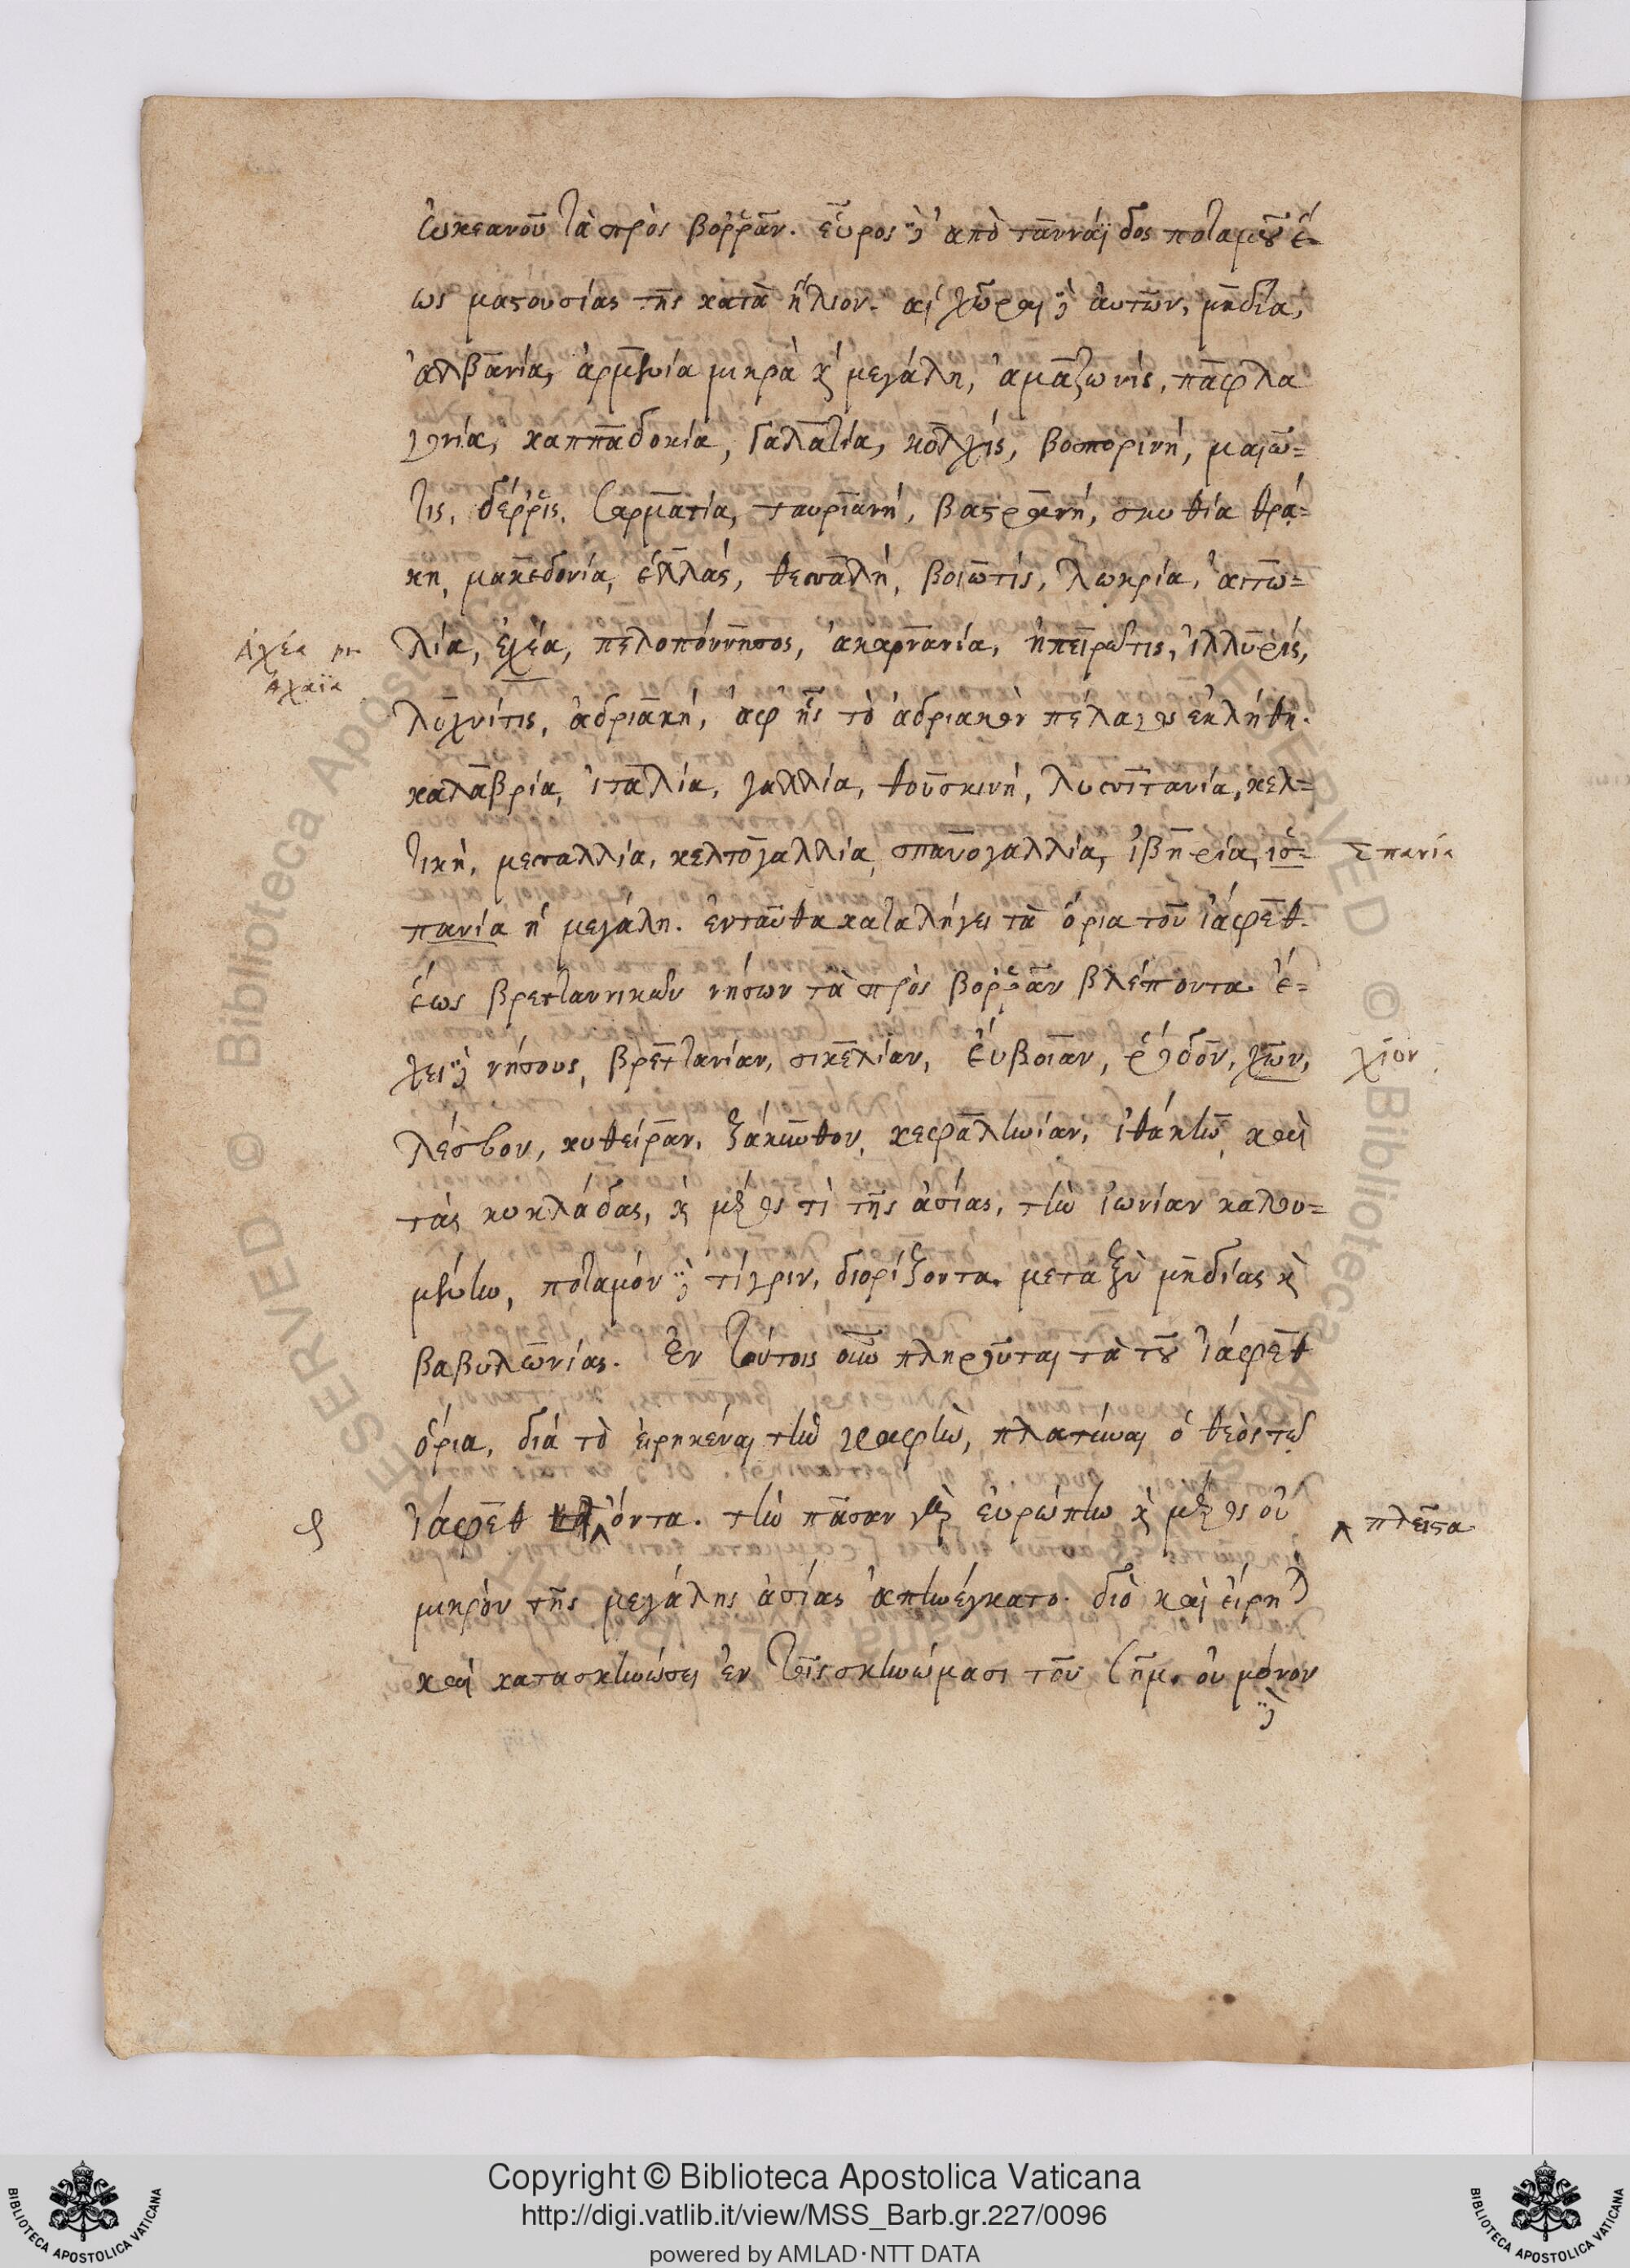 ὠκεανοῦ τὰ πρὸς βορρᾶν. εὖρος δὲ ἀπὸ ταννάϊδος ποταμοῦ ἕ-
ως μαστουσίας τῆς κατὰ ἥλιον. αἱ χῶραι δὲ αὐτῶν, μηδία,
ἀλβανία, ἀρμενία μικρὰ καὶ μεγάλη, ἀμαζωνίς, παφλα
γονία, καππαδοκία, γαλατία, κολχίς, βοσπορινή, μαιῶ=
τις, δέρρις, σαρματία, ταυριανή, βαστρανή, σκυθία θρά=
κη, μακεδονία, ἑλλάς, θεσσαλή, βοιωτίς, λωκρία, αἰτω=
λία, ἐχέα, πελοπόννησος, ἀκαρνανία, ἠπειρῶτις, ἰλλυρίς,
Ἀχέα
Ἀχαΐα
λυχνίτις, ἀδριακή, ἀφ ἧς τὸ ἀδριακὸν πέλαγος ἐκλήθη.
καλαβρία, ἰταλία, γαλλία, θουσκινή, λυσιτανία, κελ=
τική, μεσαλλία, κελτογαλλία, σπανογαλλία, ἰβηρία, ἰσ=
Σπανία
πανία ἡ μεγάλη. ἐνταῦθα καταλήγει τὰ ὅρια τοῦ ἰάφεθ.
ἕως βρεττανικῶν νήσων τὰ πρὸς βορρᾶν βλέποντα. ἔ=
χει δὲ νήσους, βρεττανίαν, σικελίαν, εὔβοιαν, ῥόδον, χῶν,
χῖον
λέσβον, κυθείραν, ζάκυνθον, κεφαληνίαν, ἰθάκην, καὶ
τὰς κυκλάδας, καὶ μέρος τὶ τῆς ἀσίας, τὴν ἰωνίαν καλου=
μένην, ποταμόν δὲ τίγριν, διορίζοντα μεταξὺ μηδίας καὶ
βαβυλωνίας. Ἐν τούτοις οὖν πληροῦται τὰ τοῦ ἰάφεθ
ὅρια, διά τὸ εἰρηκέναι τὴν γραφὴν, πλατύναι ὁ θεὸς τῷ
ἰάφεθ ὄντα. τὴν πᾶσαν γὰρ εὐρώπην καὶ μέρος οὐ
πλεῖστα
μικρὸν τῆς μεγάλης ἀσίας ἀπηνέγκατο. διὸ καὶ εἴρηται
καὶ κατασκηνώσει ἐν τοῖς σκηνώμασι τοῦ σήμ. οὐ μόνον
δὲ
RESERVED © Biblioteca Apostolica Vaticana
Copyright © Biblioteca Apostolica Vaticana
http://digi.vatlib.it/view/MSS_Barb.gr.227/0096
powered by AMLAD·NTT DATA
BIBLIOTECA APOSTOLICA VATICANA
BIBLIOTECA APOSTOLICA VATICANA